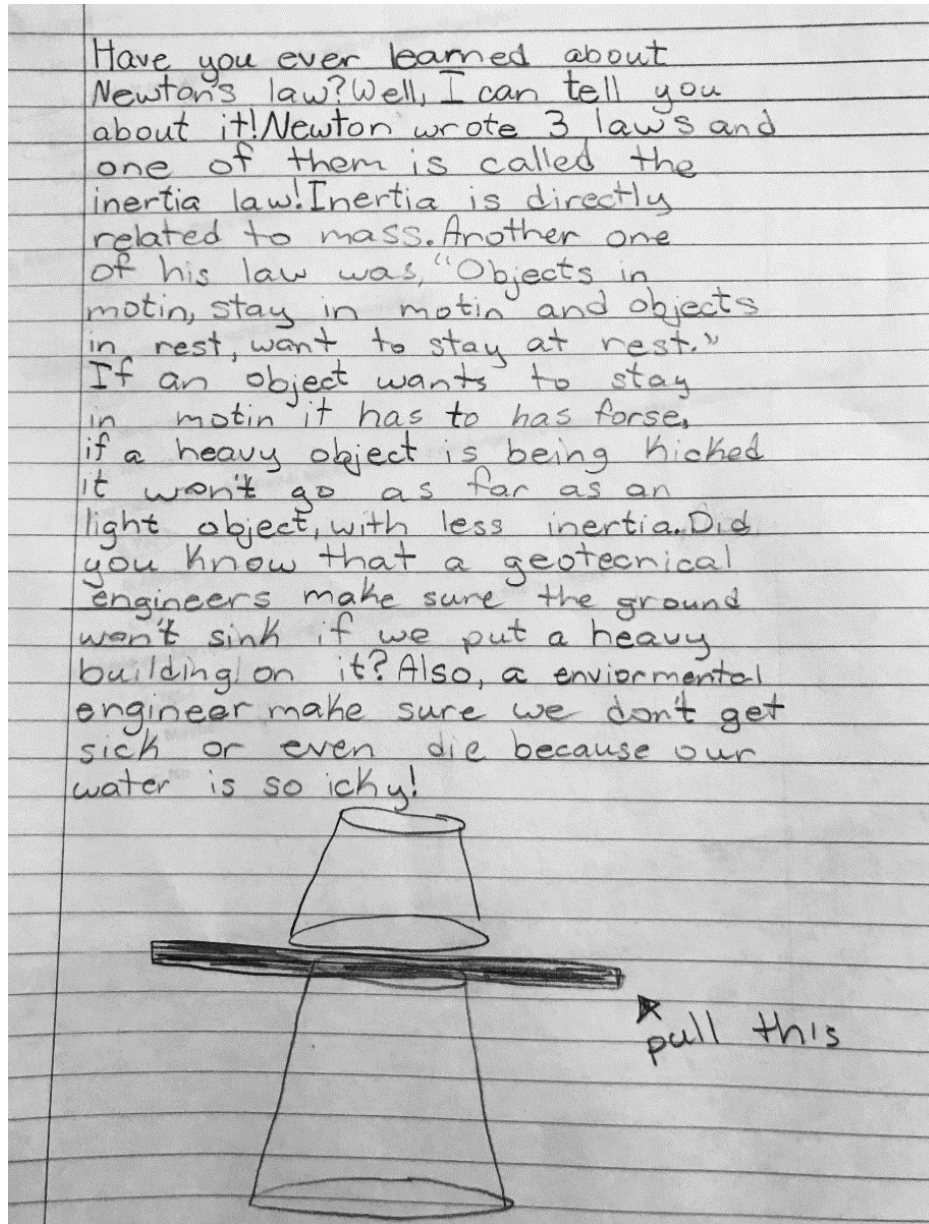 Have you ever learned about
Newton's law? Well, I can tell you
about it! Newton wrote 3 law's and
one of them is called the
inertia law! Inertia is directly
related to mass. Another one
of his law was, "Objects in
motin, stay in motin and objects
in rest, want to stay at rest."
If an object wants to stay
in motin it has to has forse,
if a heavy object is being kicked
it won't go as far as an
light object, with less inertia. Did
you know that a geotecnical
engineers make sure the ground
won't sink if we put a heavy
building on it? Also, a enviormental
engineer make sure we don't get
sick or even die because our
water is so icky!
pull this